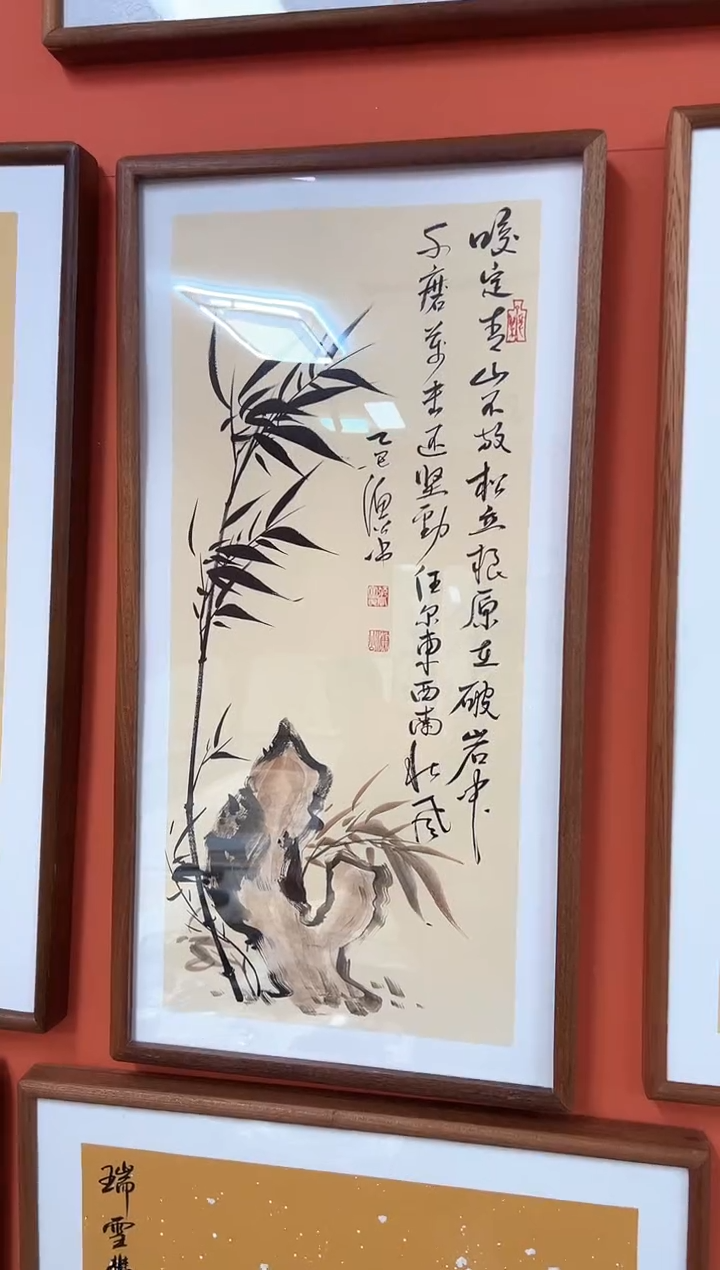 咬定青山不放松立根原在破岩中
千磨萬击还坚勁任尔東西南北风
乙巳
瑞雪